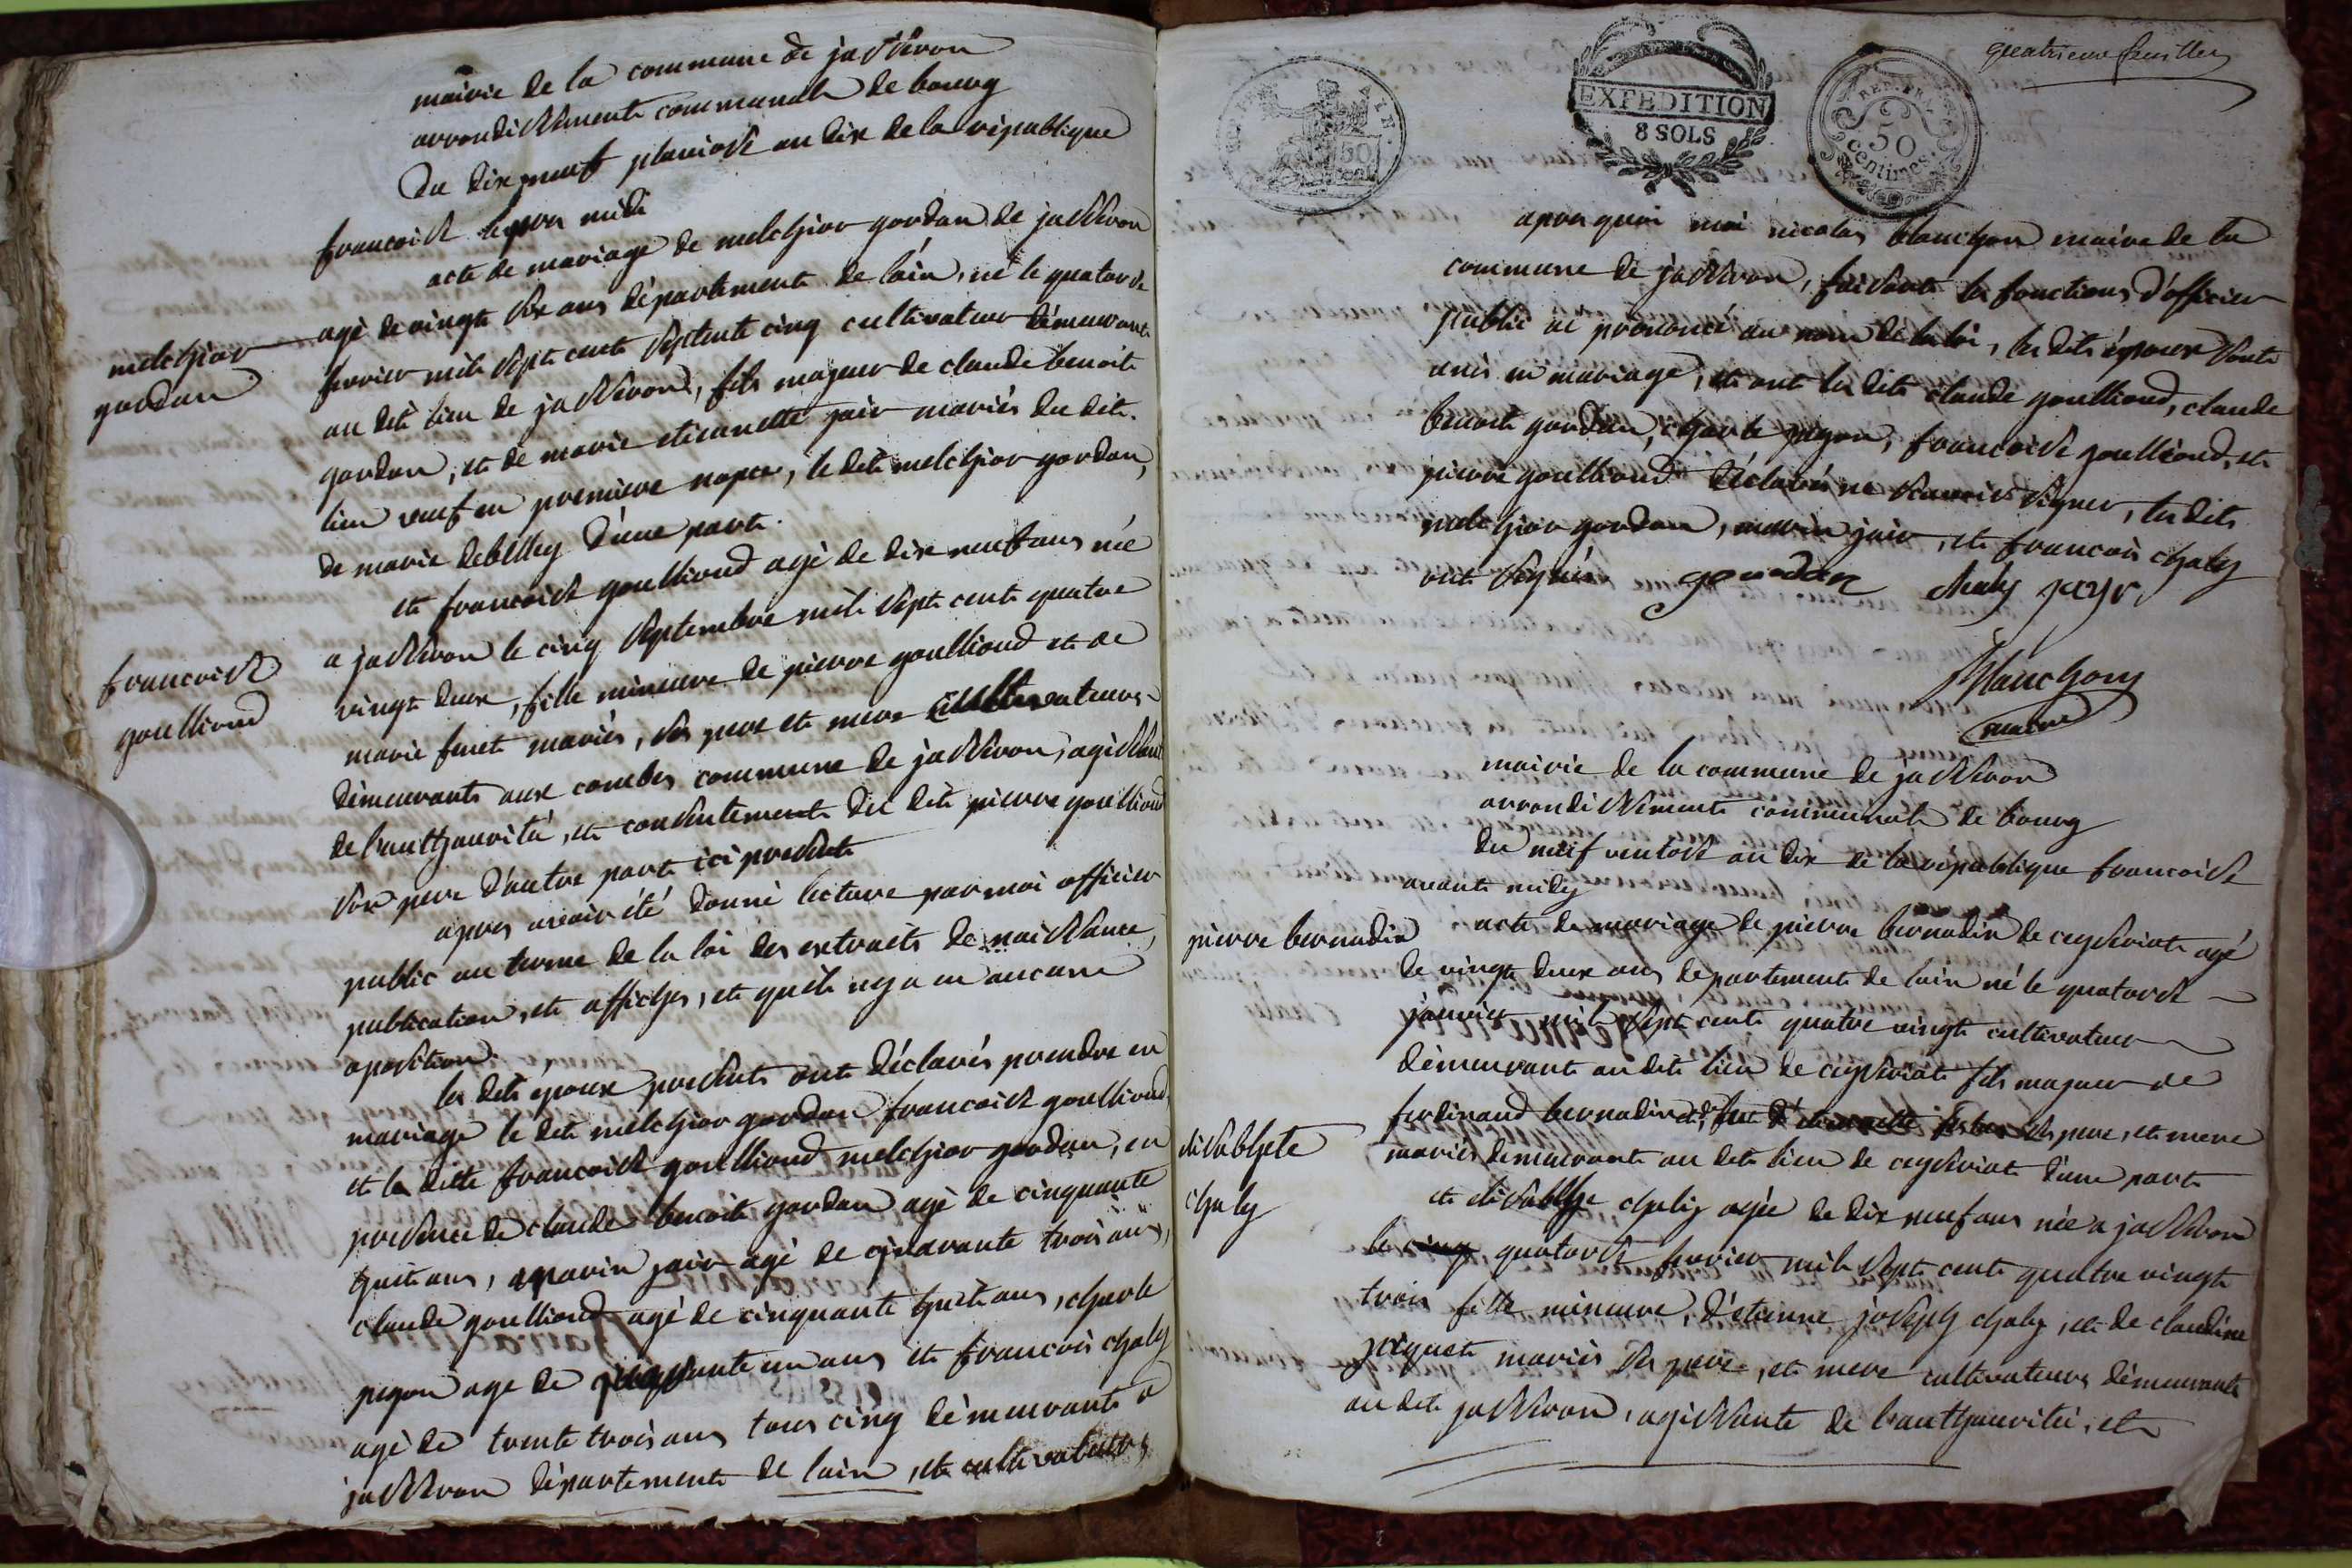 mairie de la commune de jasseron
arrondissement communale de bourg
Du dix neuf pluviose an dix de la république
francoise apres midi
acte de mariage de melchior gordan de jasseron
melchior
gordan
agé de vingt six ans département de lain, né le quatorse
fevrier mil sept cent septente cinq cultivateur démeurant
au dit lieu de jasseron, fils majeur de claude benoit
gordan, et de marie etiennette jair mariés du dit
lieu veuf en premiere nopce, le dit melchior gordan,
de marie debeley d'une part.
et francoise goullioud agé de dix neuf ans née
francoise
goullioud
a jasseron le cinq septembre mil sept cent quatre
vingt deux, fille mineure de pierre goullioud et de
marie furet mariés, ses pere et mere cultivateurs
démeurants aux combes commune de jasseron, agissant
de l'authourité, et consentement du dit pierre goullioud
son pere d'autre part ici présent
apres avoir été donné lecture par moi officier
public au terme de la loi des extraits de naissance,
publication, et affiches, et quil ny a eu aucune
oposition.
les dits époux présents ont déclarés prendre en
mariage le dit melchior gordan francoise goullioud,
et la dite francoise goullioud melchior gordan, en
presence de claude benoit gordan agé de cinquante
huit ans, marin jair agé de quarante trois ans,
claude goullioud agé de cinquante huit ans, charle
pegon age de cinquante un ans et francois chaby
agé de trente trois ans tous cinq démeurants a
jasseron département de lain, et cultivateurs
quatrieme feuillet
EXPEDITION
8 SOLS
REP. FRA.
50
centimes
50
apres quoi moi nicolas blanchon maire de la
commune de jasseron, faisant les fonctions d'officier
public ai prononcé au nom de la loi, les dits époux sont
unis en mariage, et ont les dits claude goullioud, claude
benoit gordan, charle pegon, francoise goullioud, et
pierre goullioud déclarés ne scavoir signer, les dits
melchior gordan, marin jair, et francois chaby
ont signés gourdan chaby jayr
Blanchon
maire
mairie de la commune de jasseron
arrondissement communale de bourg
du neuf ventose an dix de la république francoise
avant midy
pierre bernadin
acte de mariage de pierre bernadin de ceyseriat agé
de vingt deux ans département de lain né le quatorse
janvier mil sept cent quatre vingt cultivateur
démeurant au dit lieu de ceyseriat fils majeur de
ferdinand bernadin, et d'etiennette ses pere, et mere
mariés démeurants au dit lieu de ceyseriat d'une part
elisabhete
chaby
et elisabhe chaby agée de dix neuf ans née a jasseron
le cinq quatorse fevrier mil sept cent quatre vingt
trois fille mineure, d'etienne joseph chaby, et de claudine
jacquet mariés ses pere, et mere cultivateurs démeurants
au dit jasseron, agissante de l'authourité, et